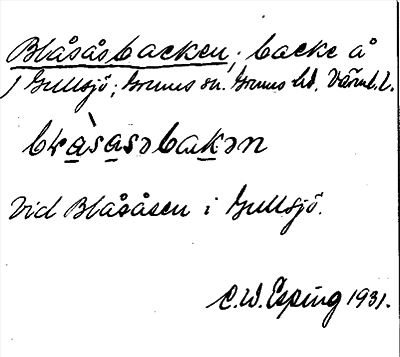 Blåsåsbacken; backe å
Gullsjö; Grums sn. Grums hd. Värml. l.
Vid Blåsåsen i Gullsjö.
C.W. Esping 1931.